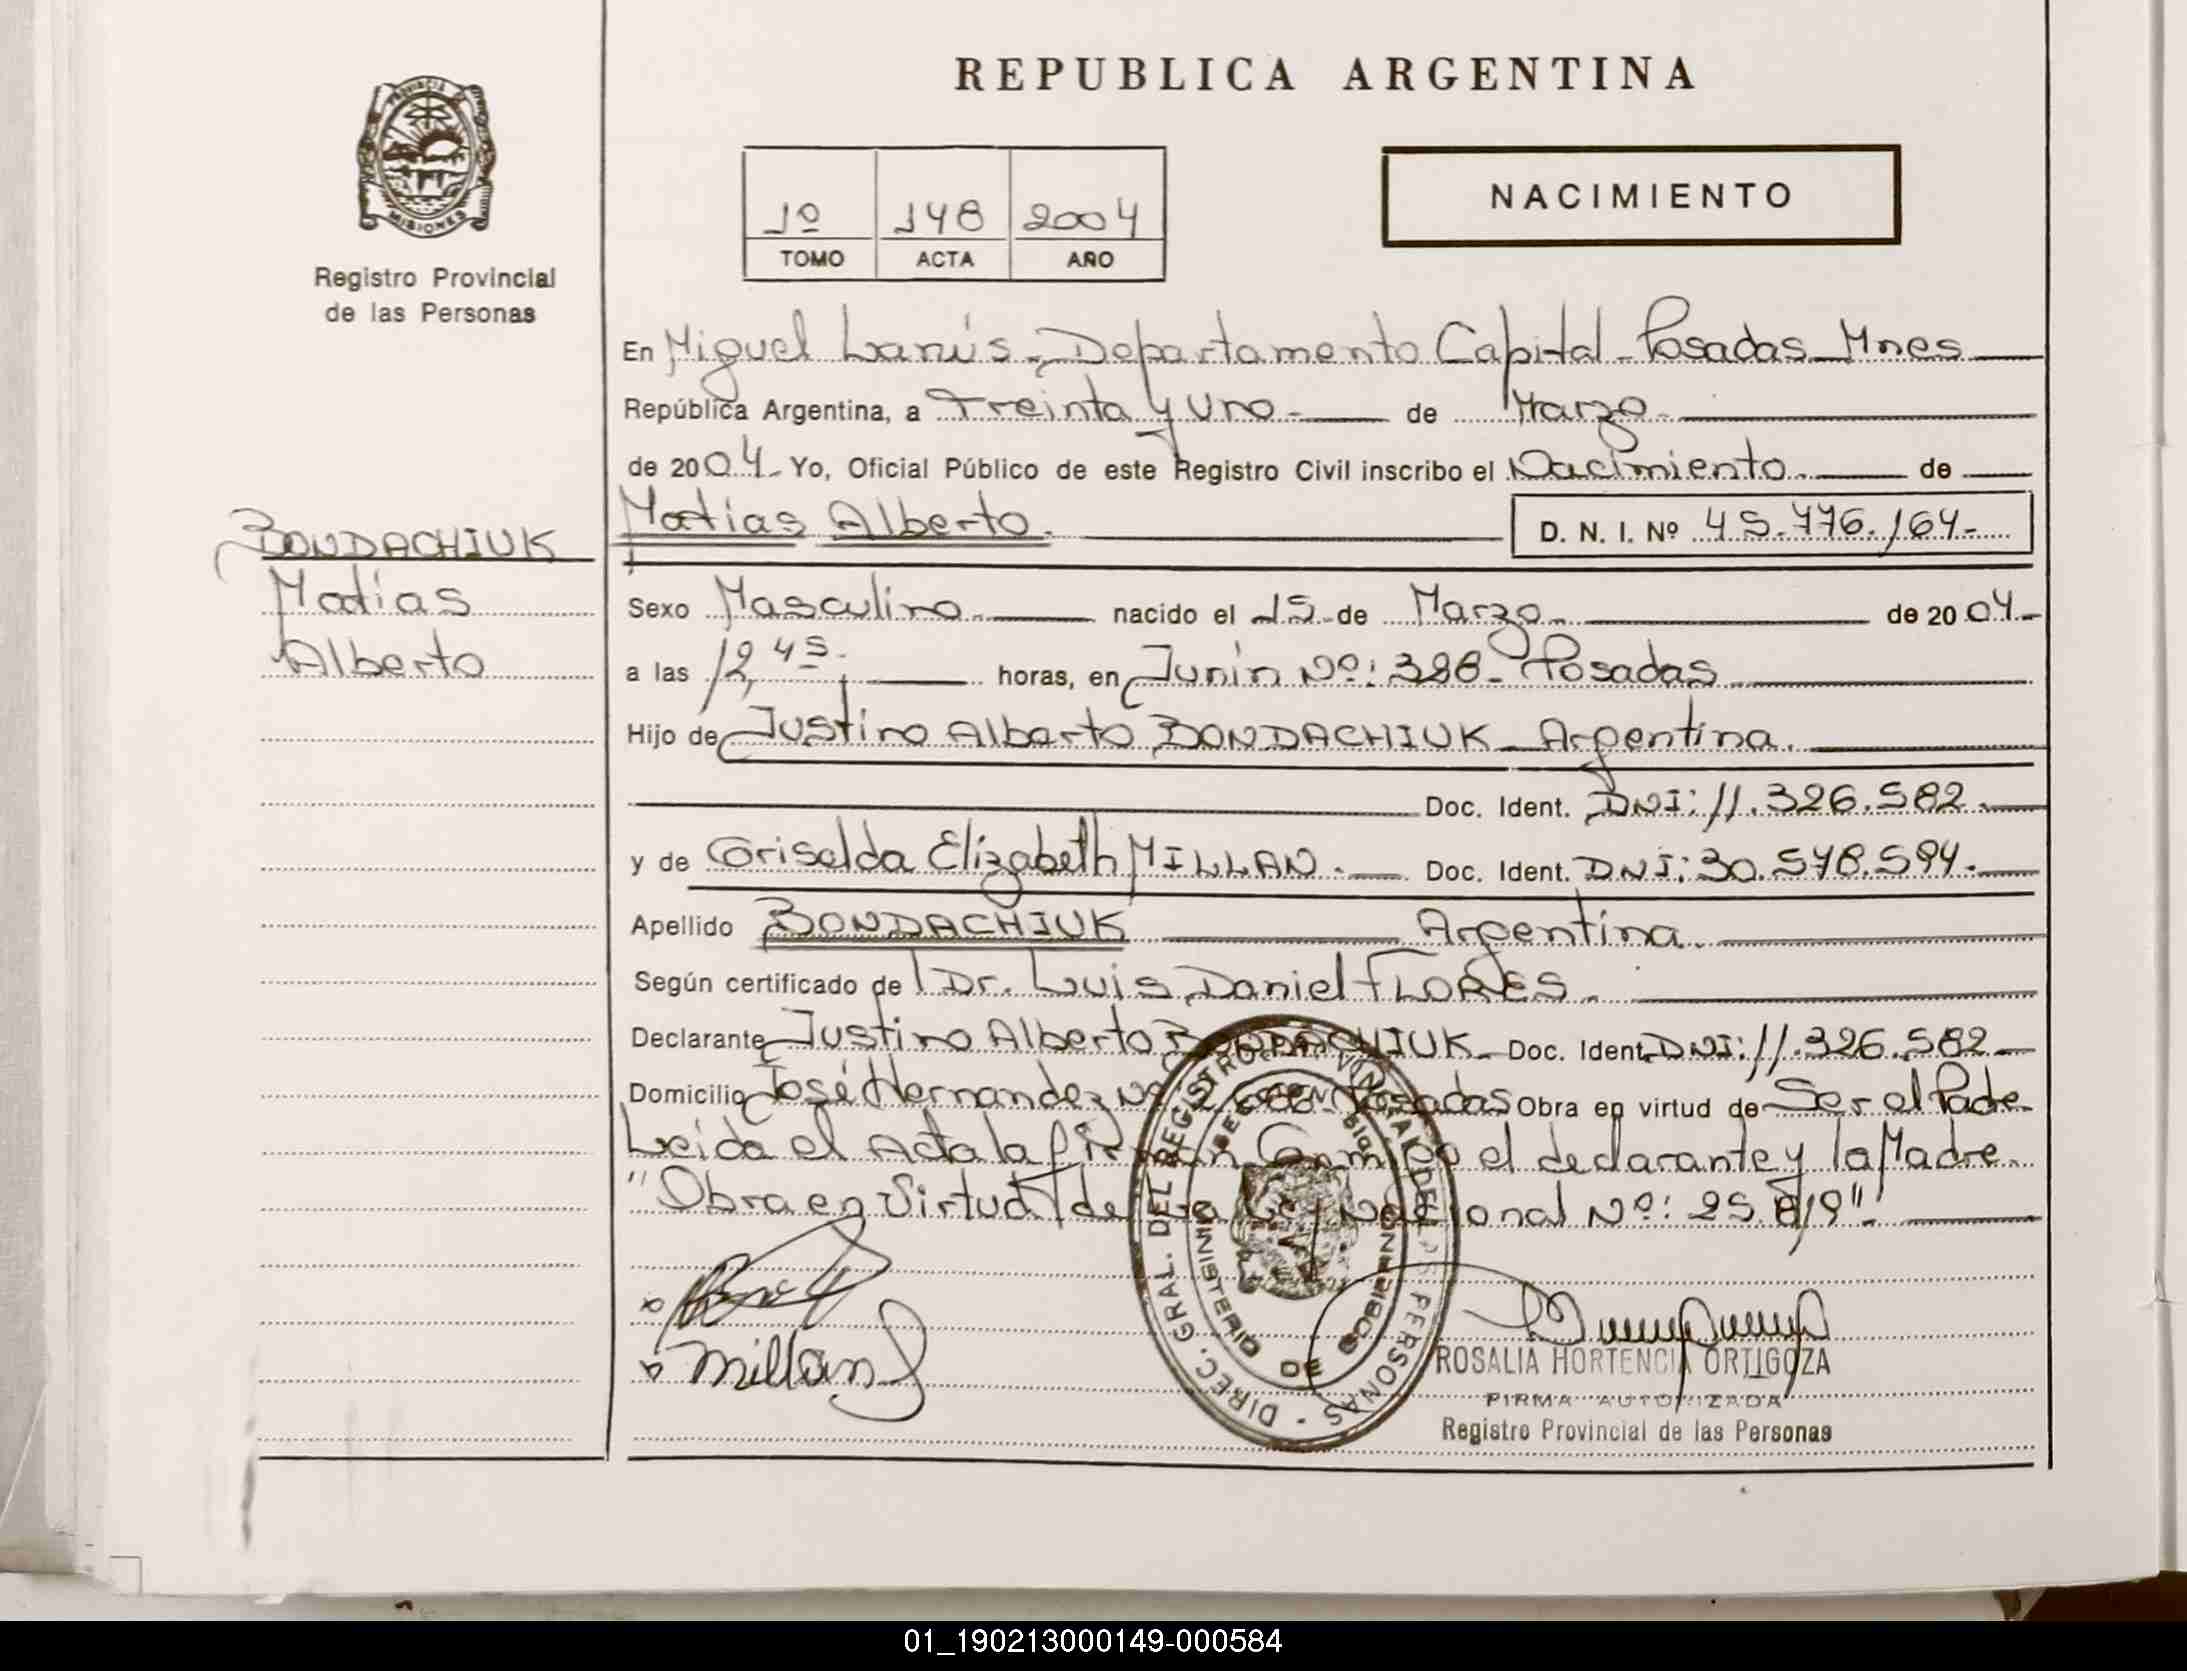 REPUBLICA ARGENTINA
PROVINCIA DE
MISIONES
Registro Provincial
de las Personas
1º 148 2004
TOMO ACTA AÑO
NACIMIENTO
En Miguel Lanús - Departamento Capital - Posadas Mnes
República Argentina, a Treinta y Uno - de Marzo -
de 2004 - Yo, Oficial Público de este Registro Civil inscribo el Nacimiento. de
BONDACHIUK
Matías
Alberto
Matías Alberto. D. N. I. Nº 45.776.164-
Sexo Masculino - nacido el 15 - de Marzo - de 2004 -
a las 12,45 - horas, en Junín Nº: 388 - Posadas
Hijo de Justino Alberto BONDACHIUK - Argentina.
Doc. Ident. DNI: 11.326.582 -
y de Griselda Elizabeth MILLAN. - Doc. Ident. DNI: 30.578.594 -
Apellido BONDACHIUK Argentina.
Según certificado de Dr. Luis Daniel FLORES -
Declarante Justino Alberto BONDACHIUK - Doc. Ident. DNI: 11.326.582 -
Domicilio José Hernandez Nº Posadas Obra en virtud de Ser el Padre
Leida el Acta la Firman Conmigo el declarante y la Madre.
"Obra en Virtud de la Ley Nacional Nº: 25.819"
Millan
DIREC. GRAL. DEL REGISTRO PROVINCIAL DE LAS PERSONAS
MINISTERIO DE GOBIERNO
ROSALIA HORTENCIA ORTIGOZA
FIRMA AUTORIZADA
Registro Provincial de las Personas
01_190213000149-000584